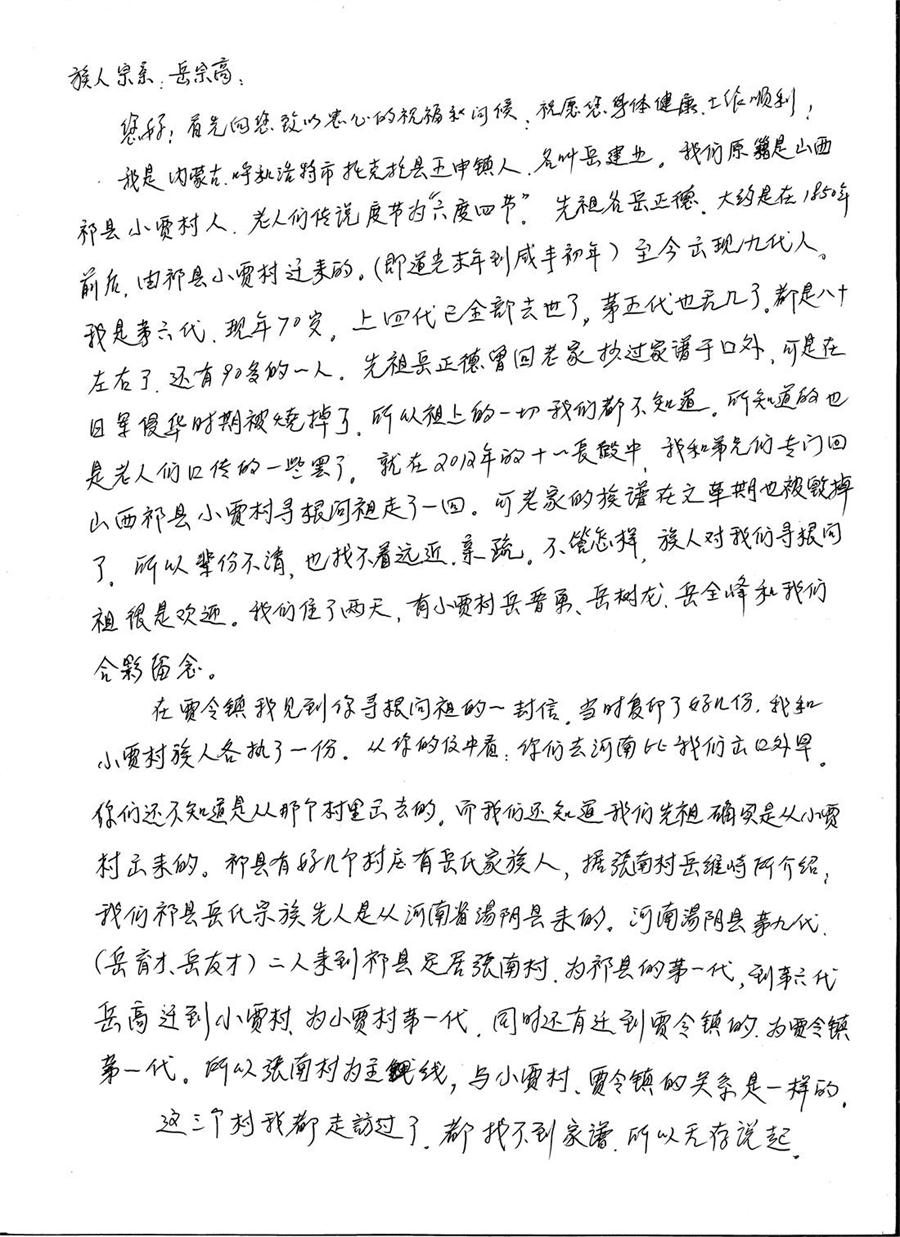 族人宗系:岳宗高:
您好!首先向您致以衷心的祝福和问候,祝愿您身体健康、工作顺利!
我是内蒙古、呼和浩特市托克托县五申镇人、名叫岳建业。我们原籍是山西
祁县小贾村人、老人们传说度节为“六度四节”。先祖名岳正德、大约是在1850年
前后,由祁县小贾村迁来的。(即道光末年到咸丰初年)至今出现九代人。
我是第六代、现年70岁。上四代已全部去世了,第五代也无几了。都是八十
左右了、还有90多的一人。先祖岳正德曾回老家抄过家谱于口外,可是在
日军侵华时期被烧掉了、所以祖上的一切我们都不知道。所知道的也
是老人们口传的一些罢了。就在2012年的十一长假中,我和弟兄们专门回
山西祁县小贾村寻根问祖走了一回。可老家的族谱在文革期也被毁掉
了。所以辈份不清,也找不着远近、亲疏。不管怎样,族人对我们寻根问
祖很是欢迎。我们住了两天,有小贾村岳晋勇、岳树龙、岳全峰和我们
合影留念。
在贾令镇我见到你寻根问祖的一封信,当时复印了好几份、我和
小贾村族人各执了一份。从你的信中看:你们去河南比我们出口外早。
你们还不知道是从那个村里出去的,而我们还知道我们先祖确实是从小贾
村出来的。祁县有好几个村庄有岳氏家族人,据张南村岳维峙所介绍:
我们祁县岳氏宗族先人是从河南省汤阴县来的。河南汤阴县第九代、
(岳育才、岳友才)二人来到祁县定居张南村、为祁县的第一代,到第六代
岳高迁到小贾村、为小贾村第一代、同时还有迁到贾令镇的、为贾令镇
第一代。所以张南村为主线,与小贾村、贾令镇的关系是一样的。
这三个村我都走访过了、都找不到家谱、所以无存说起。